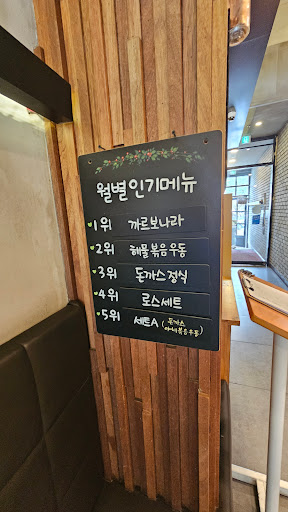 월별인기메뉴
1위 까르보나라
2위 해물볶음우동
3위 돈까스정식
4위 로스세트
5위 세트A (돈까스
야채볶음우동)